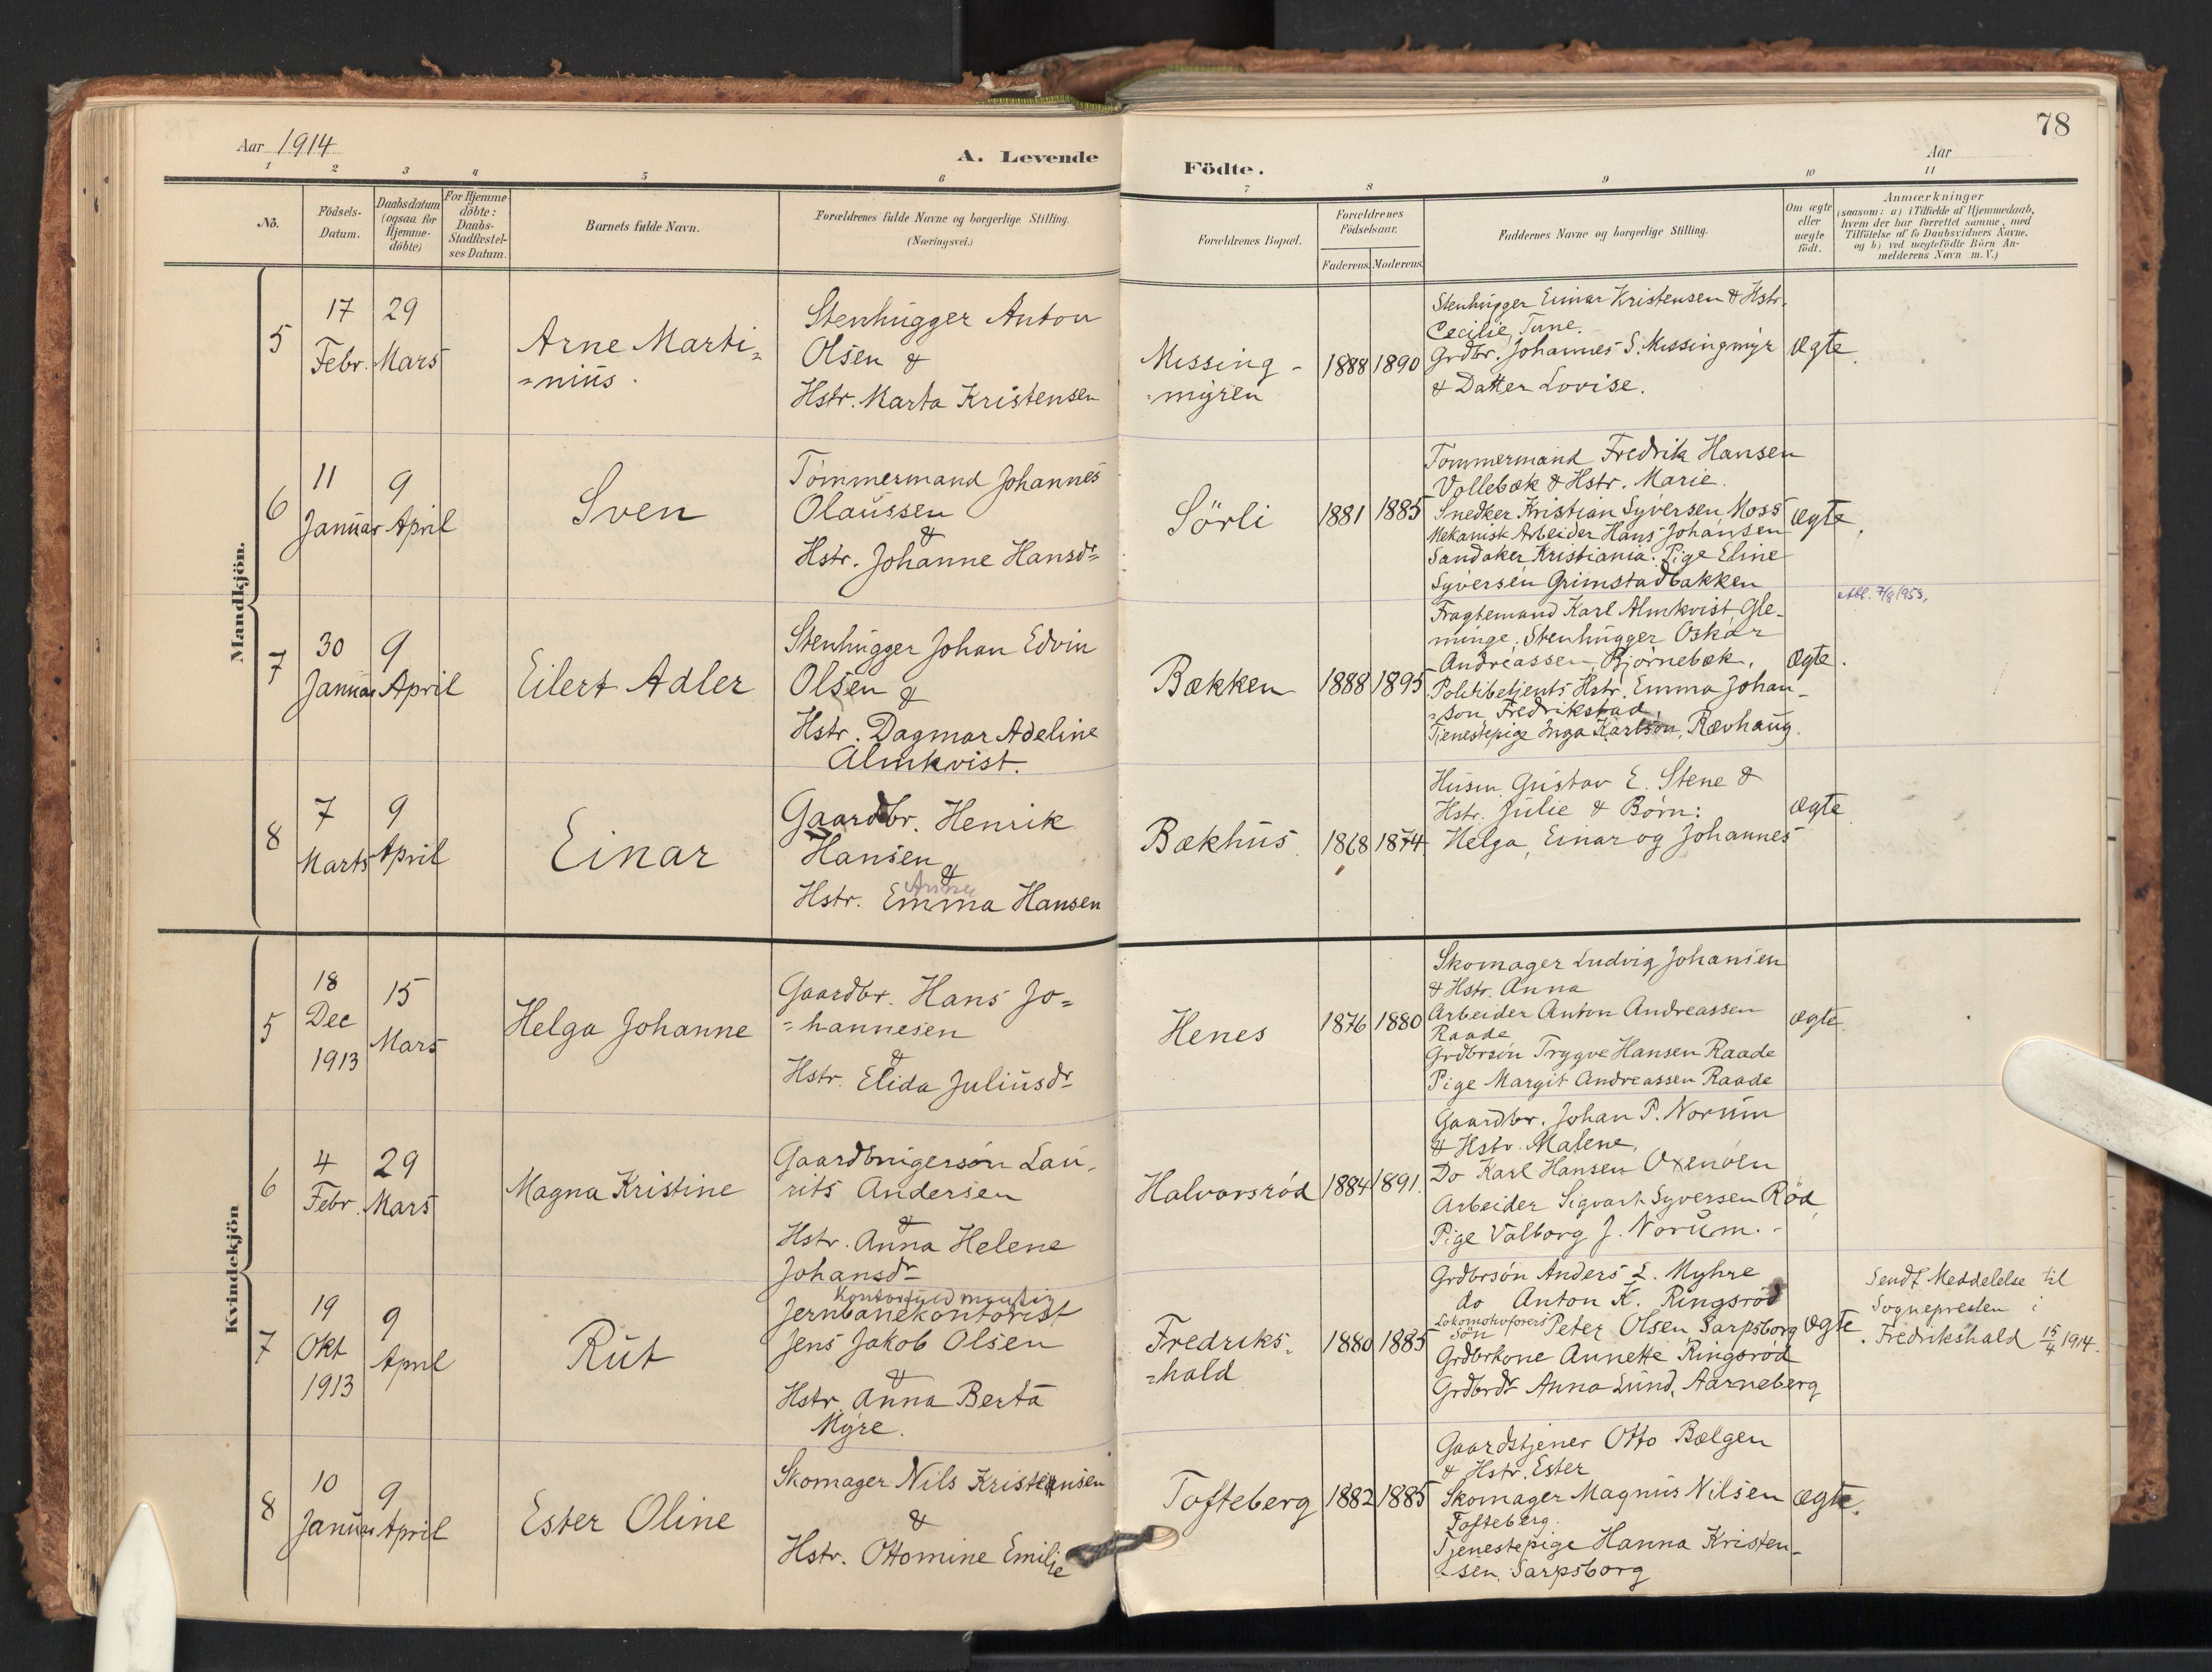 78
Aar 1914
A. Levende Födte.
Aar
1 2 3 4 5 6 7 8 9 10 11
No.
Födsels-
Datum.
Daabsdatum
(ogsaa for
Hjemme-
döbte)
For Hjemme
döbte:
Daabs-
Stadfæstel-
ses Datum.
Barnets fulde Navn.
Forældrenes fulde Navne og borgerlige Stilling.
(Næringsvei.)
Forældrenes Bopæl.
Forældrenes
Födselsaar.
Faderens. Moderens.
Faddernes Navne og borgerlige Stilling.
Om ægte
eller
uægte
födt.
Anmærkninger
(saasom: a) i Tilfælde af Hjemmedaab,
hvem der har forrettet samme, med
Tilföielse af to Daabsvidners Navne,
og b) ved uægtefödte Börn An-
melderens Navn m. V.)
Mandkjön.
5
17
Febr.
29
Mars
Arne Marti=
=nius.
Stenhugger Anton
Olsen &
Hstr. Marta Kristensen
Missing-
=myren
1888 1890
Stenhugger Einar Kristensen & Hstr.
Cecilie, Tune.
Grdbr. Johannes S. Missingmyr
& Datter Lovise.
Ægte.
6
11
Januar
9
April
Sven
Tömmermand Johannes
Olaussen
&
Hstr. Johanne Hansdr
Sörli
1881 1885
Tömmermand Fredrik Hansen
Vollebæk & Hstr. Marie.
Snedker Kristian Syversen Moss
Mekanisk Arbeider Hans Johansen
Sandaker Kristiania. Pige Eline
Syversen Grimstadbakken
Ægte.
7
30
Januar
9
April
Eilert Adler
Stenhugger Johan Edvin
Olsen &
Hstr. Dagmar Adeline
Almkvist.
Bækken
1888 1895
Fragtemand Karl Almkvist Gle-
minge, Stenhugger Oskar
Andreassen, Björnebæk.
Politibetjents Hstr. Emma Johan-
=son, Fredrikstad,
Tjenestepige Inga Karlson, Rævhaug.
Ægte.
8
7
Marts
9
April
Einar
Gaardbr. Henrik
Hansen
&
Anna
Hstr. Emma Hansen
Bækhus.
1868 1874
Husm. Gustav E. Stene &
Hstr. Julie & Börn:
Helga, Einar og Johannes
Ægte.
Kvindekjön
5
18
Dec
1913
15
Mars
Helga Johanne
Gaardbr. Hans Jo=
=hannesen
&
Hstr. Elida Juliusdr
Henes
1876 1880
Skomager Ludvig Johansen
& Hstr. Anna
Arbeider Anton Andreassen
Raade
Grdbrsön Trygve Hansen Raade
Pige Margit Andreassen Raade
Ægte.
6
4
Febr.
29
Mars
Magna Kristine
Gaardbrugersön Lau-
rits Andersen
&
Hstr. Anna Helene
Johansdr
Halvorsröd
1884 1891.
Gaardbr. Johan P. Norum
& Hstr. Malene,
Do Karl Hansen Oxenöen
Arbeider Sigvart Syversen Röd,
Pige Valborg J. Norum.
7
19
Okt
1913
9
April
Rut
Kontorfuldmægtig
Jernbanekontorist
Jens Jakob Olsen
&
Hstr. Anna Berta
Myre.
Fredriks-
=hald
1880 1885
Grdbrsön Anders L. Myhre
do Anton K. Ringsröd
Lokomotivförers
sön Peter Olsen, Sarpsborg
Grdbrkone Annette Ringsröd
Grdbrdr Anna Lund, Aarneberg
Ægte.
Sendt Meddelelse til
Sognepresten i
Fredrikshald 15/4 1914.
8
10
Januar
9
April
Ester Oline
Skomager Nils Kristensen
&
Hstr. Ottomine Emilie
Tofteberg
1882 1885
Gaardstjener Otto Bælgen
& Hstr. Ester
Skomager Magnus Nilsen
Tofteberg.
Tjenestepige Hanna Kristen-
=sen, Sarpsborg
Ægte.